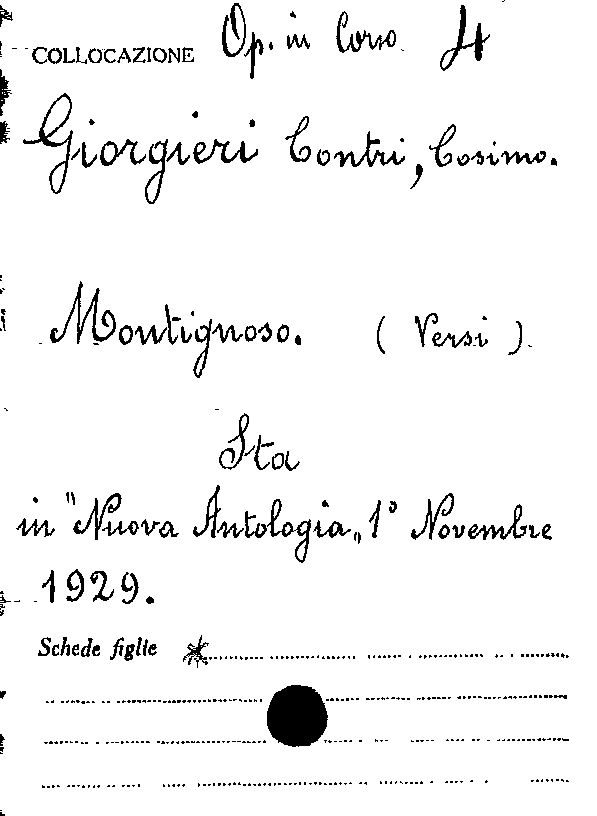 COLLOCAZIONE Op. in Corso. 4
Giorgieri Contri, Cosimo.
Montignoso. ( Versi ).
Sta
in "Nuova Antologia„ 1° Novembre
1929.
Schede figlie